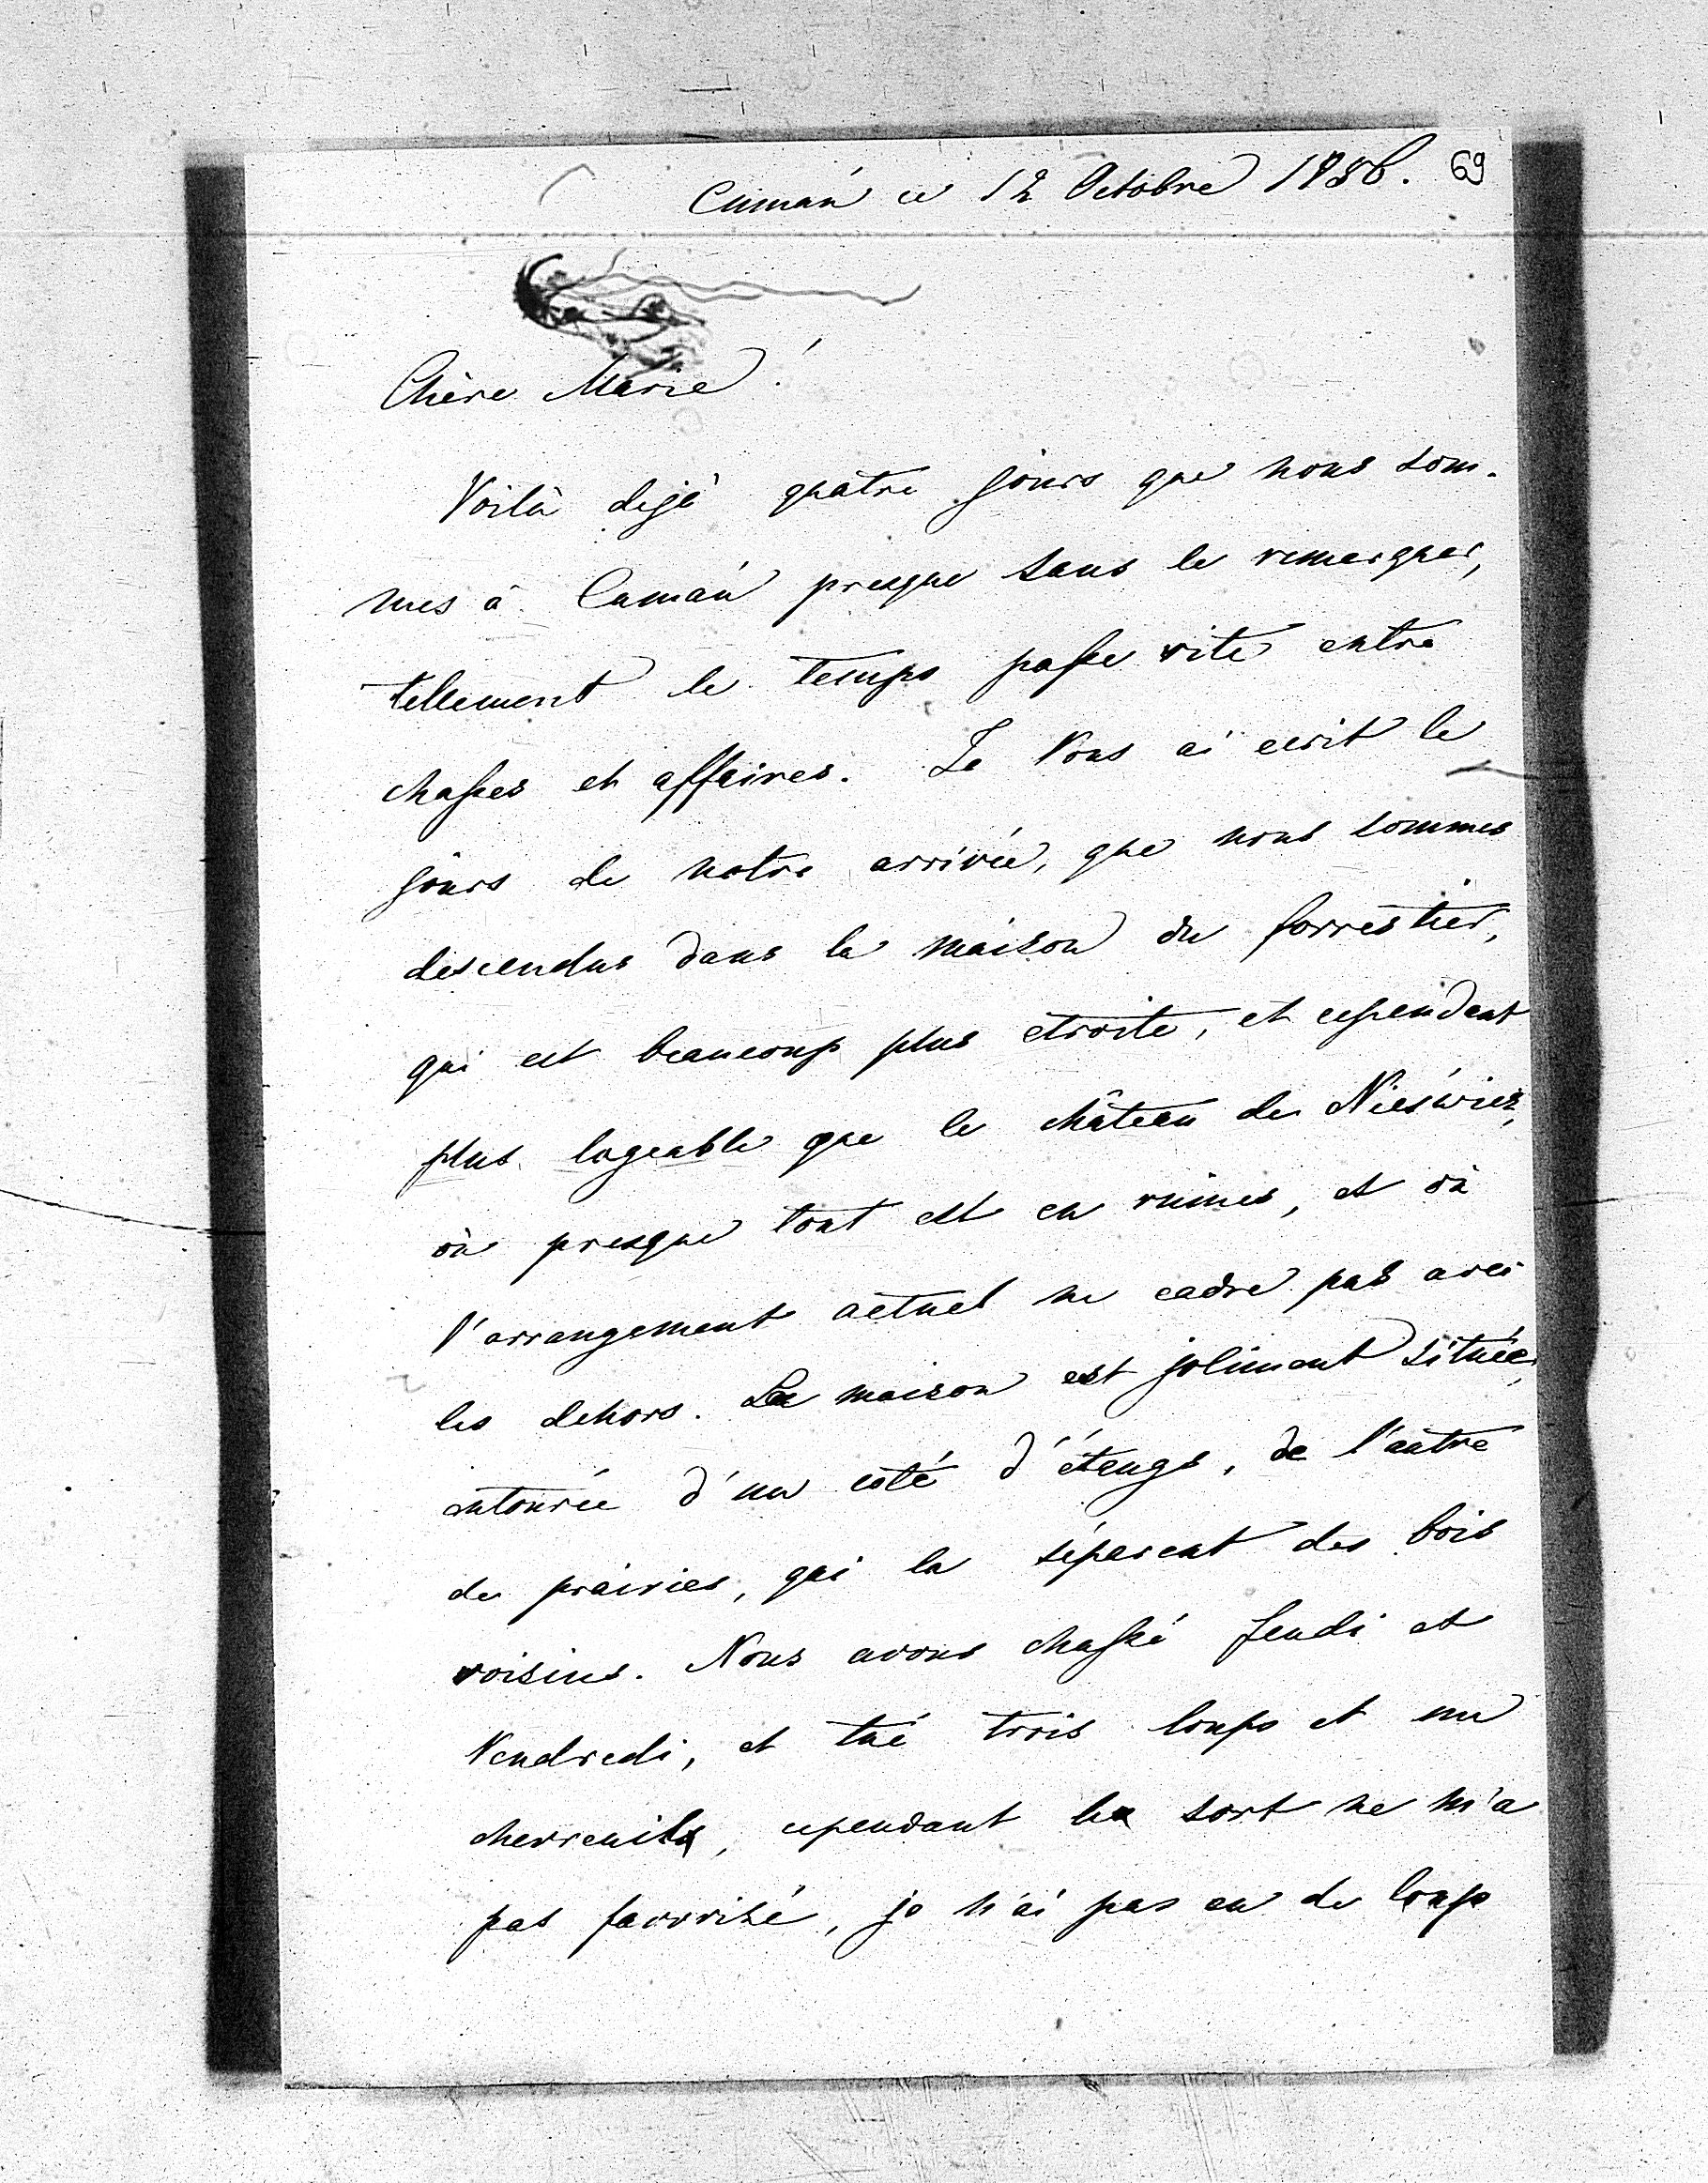 Cumań ce 12 Octobre 1886. 69
Chère Marie!
Voilà dejà quatre jours que nous som-
mes à Cumań presque sans le remarquer,
tellement le temps passe vite entre
chasses et affaires. Je Vous ai ecrit le
jours de notre arrivée, que nous sommes
descendus dans la maison du forrestier,
qui est beaucoup plus etroite, et cependant
plus logeable que le château de Nieświez,
où presque tout est en ruines, et où
l'arrangement actuel ne cadre pas avec
les dehors. La maison est joliment située,
entourée d'un coté d'étangs, de l'autre
de prairies, qui la séparent des bois
voisins. Nous avons chassé Jeudi et
Vendredi, et tué trois loups et un
chevreuil, cependant le sort ne m'a
pas favorisé, je n'ai pas eu de loup